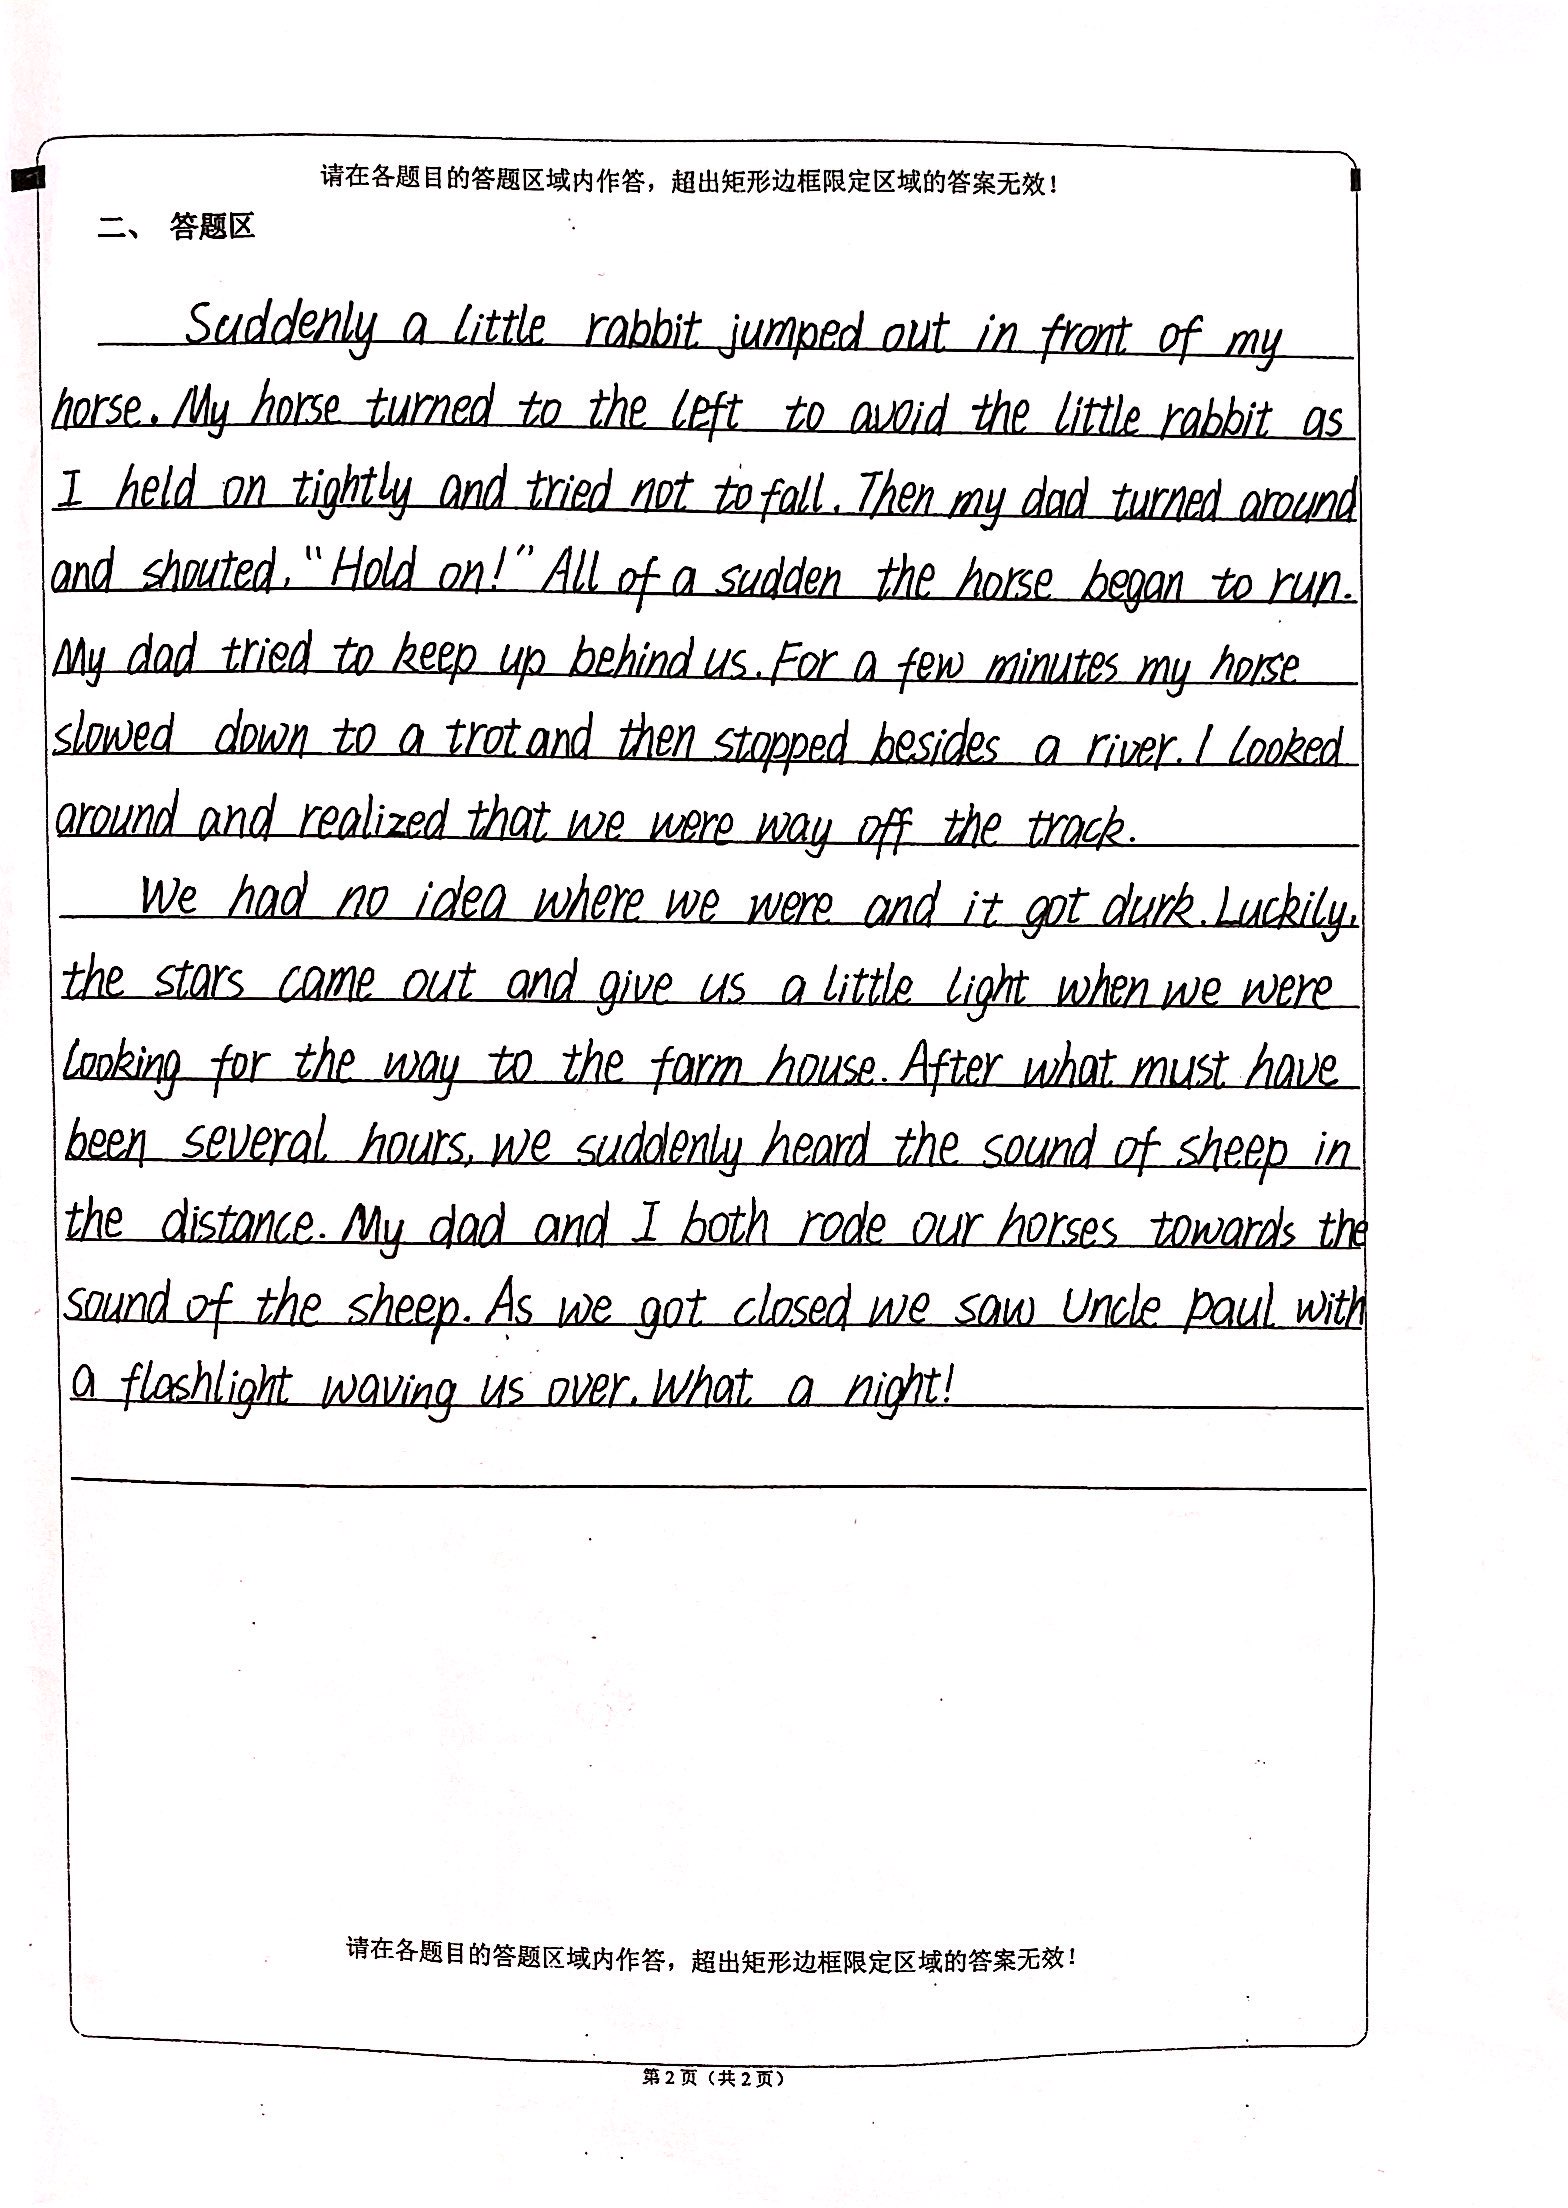 请在各题目的答题区域内作答，超出矩形边框限定区域的答案无效！
二、 答题区
Suddenly a little rabbit jumped out in front of my
horse. My horse turned to the left to avoid the little rabbit as
I held on tightly and tried not to fall. Then my dad turned around
and shouted, "Hold on!" All of a sudden the horse began to run.
My dad tried to keep up behind us. For a few minutes my horse
slowed down to a trot and then stopped besides a river. I looked
around and realized that we were way off the track.
We had no idea where we were and it got durk. Luckily,
the stars came out and give us a little light when we were
looking for the way to the farm house. After what must have
been several hours, we suddenly heard the sound of sheep in
the distance. My dad and I both rode our horses towards the
sound of the sheep. As we got closed we saw Uncle Paul with
a flashlight waving us over. What a night!
请在各题目的答题区域内作答，超出矩形边框限定区域的答案无效！
第 2 页（共 2 页）